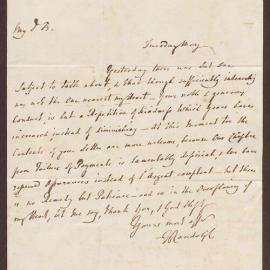 My D B.
Tuesday Morg
Yesterday there was but one
Subject to talk about & that though sufficiently interesting
was not the one nearest my Heart. Your noble & generous
Conduct is but a Repetition of Kindness which Years have
increased instead of diminishing — At this Moment the
Contents of your Letter are more welcome, because Our Chapter
from Failure of Payments is lamentably deficient, & we have
repeated assurances instead of l'Argent comptant — but there
is no Remedy but Patience — and so in the Overflowing of
my Heart, let me say, Thank you, & God bless
Yours most aff
J Randolph